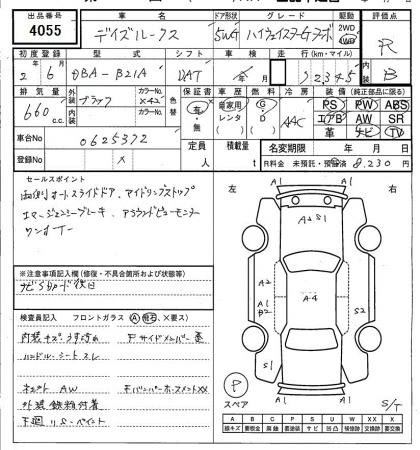 出品番号 車名 ドア形状 グレード 駆動 評価点
4055 デイズルークス 5WG ハイウェイスターGターボ 2WD 4WD R
初度登録 型式 シフト 車検 走行(km・マイル) 内装
2 6 DBA-B21A DAT 年 月 52345 B
排気量 外装 カラーNo. 色替 保証書 車歴 燃料 冷房 装備(純正部品に限る)
660 c.c. ブラック 有・無 自家用 レンタ G D AAC PS PW ABS
内装 カラーNo. エアB AW SR
革 ナビ TV
車台No 0625372 定員 人 積載量 t 名変期限 年 月 日
登録No × R料金 未預託・預託済 8,230 円
セールスポイント
両側オートスライドドア、アイドリングストップ
エマージェンシーブレーキ、アラウンドビューモニター
ワンオーナー
左 右
※注意事項記入欄(修復・不具合箇所および状態等)
ナビSDカード後日
検査員記入 フロントガラス(A 飛石 ×要ス)
内装キズ うす汚れ Fサイドメンバー歪
ハンドル シートスレ
AW
外装鉄粉付着
下廻り S・ペイント
A2 S1
A2
A1
B2
A-4
S2
S1
S1
P
スペア
S/T
A B C P S U W X XX
線キズ 要板金 腐蝕 要塗装 サビ 凹凸 補修跡 要交換 交換跡